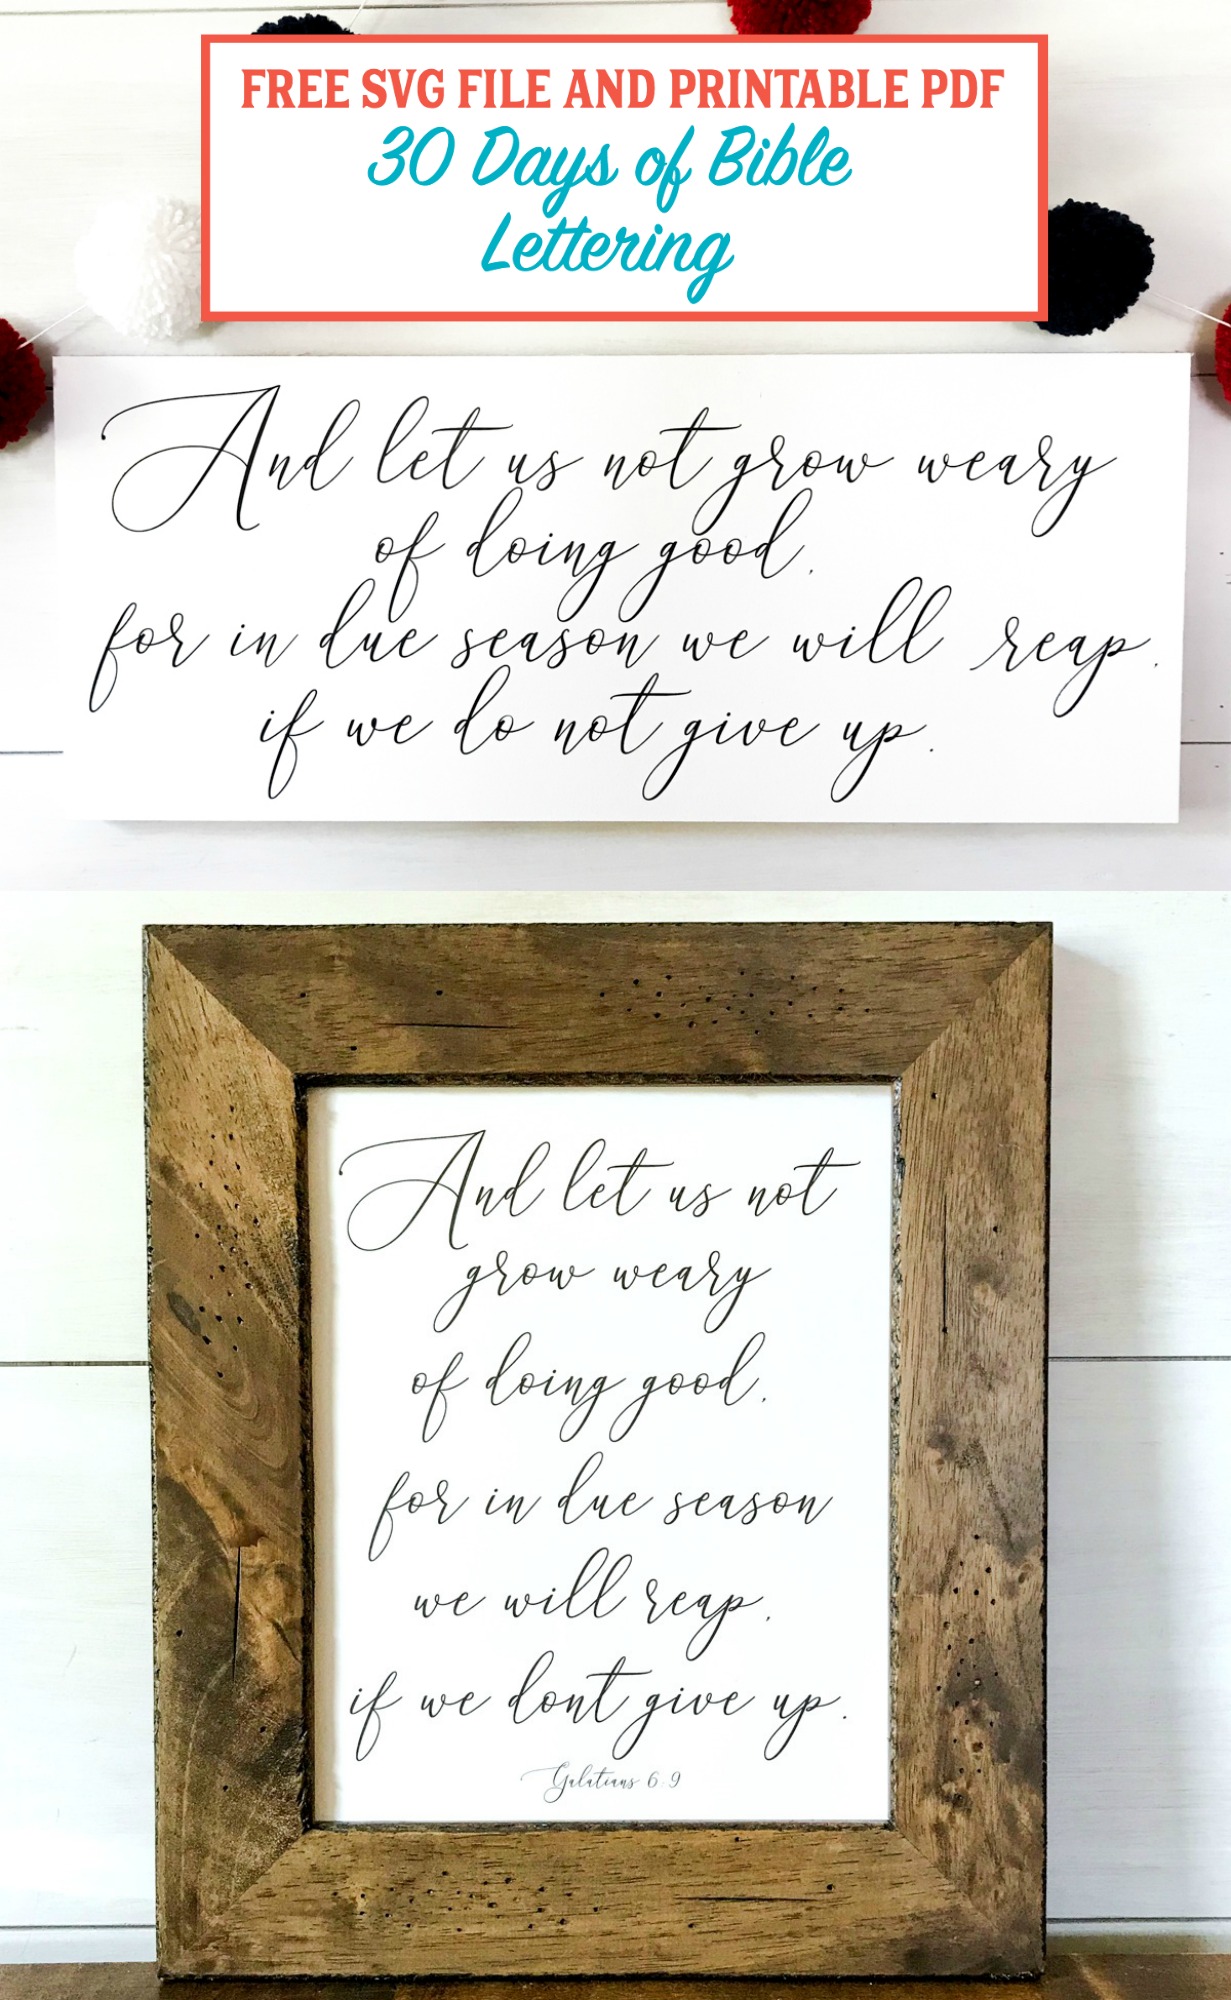 FREE SVG FILE AND PRINTABLE PDF
30 Days of Bible
Lettering
And let us not grow weary
of doing good,
for in due season we will reap,
if we do not give up.
And let us not
grow weary
of doing good,
for in due season
we will reap,
if we dont give up.
Galatians 6:9